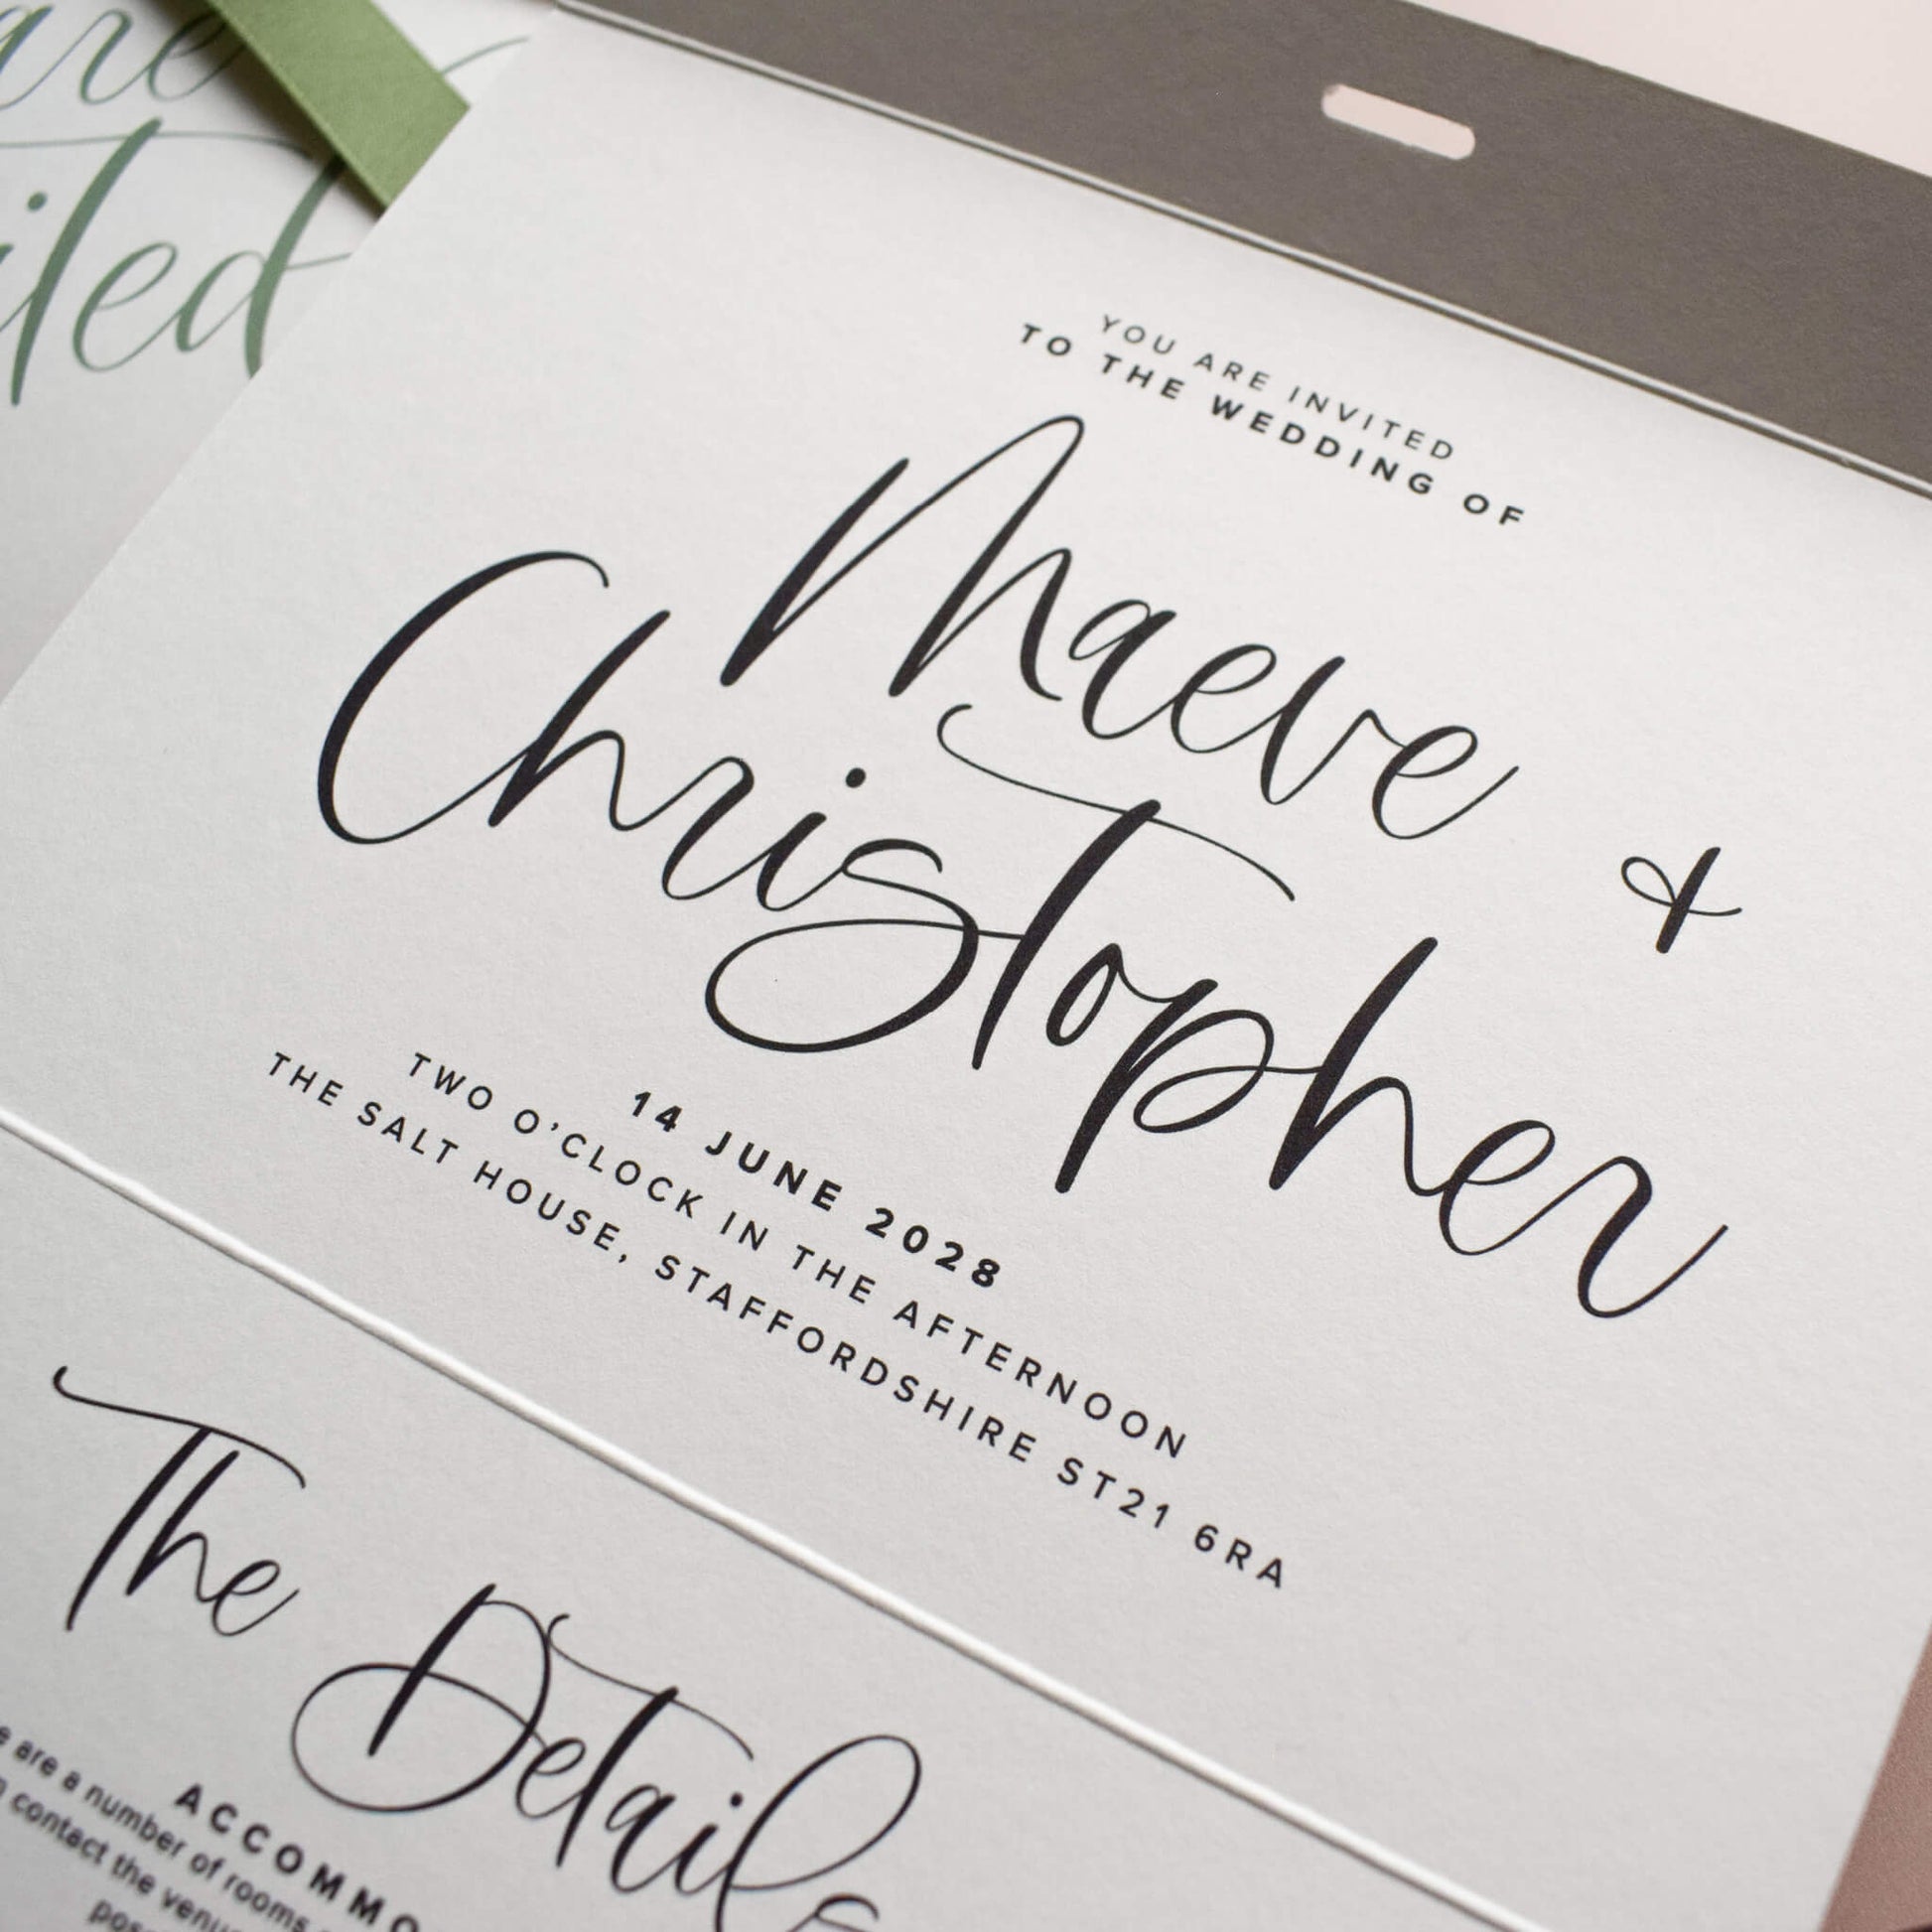 are
YOU ARE INVITED
TO THE WEDDING OF
Maeve +
Christopher
14 JUNE 2028
TWO O'CLOCK IN THE AFTERNOON
THE SALT HOUSE, STAFFORDSHIRE ST21 6RA
The Details
are a number of rooms
contact the